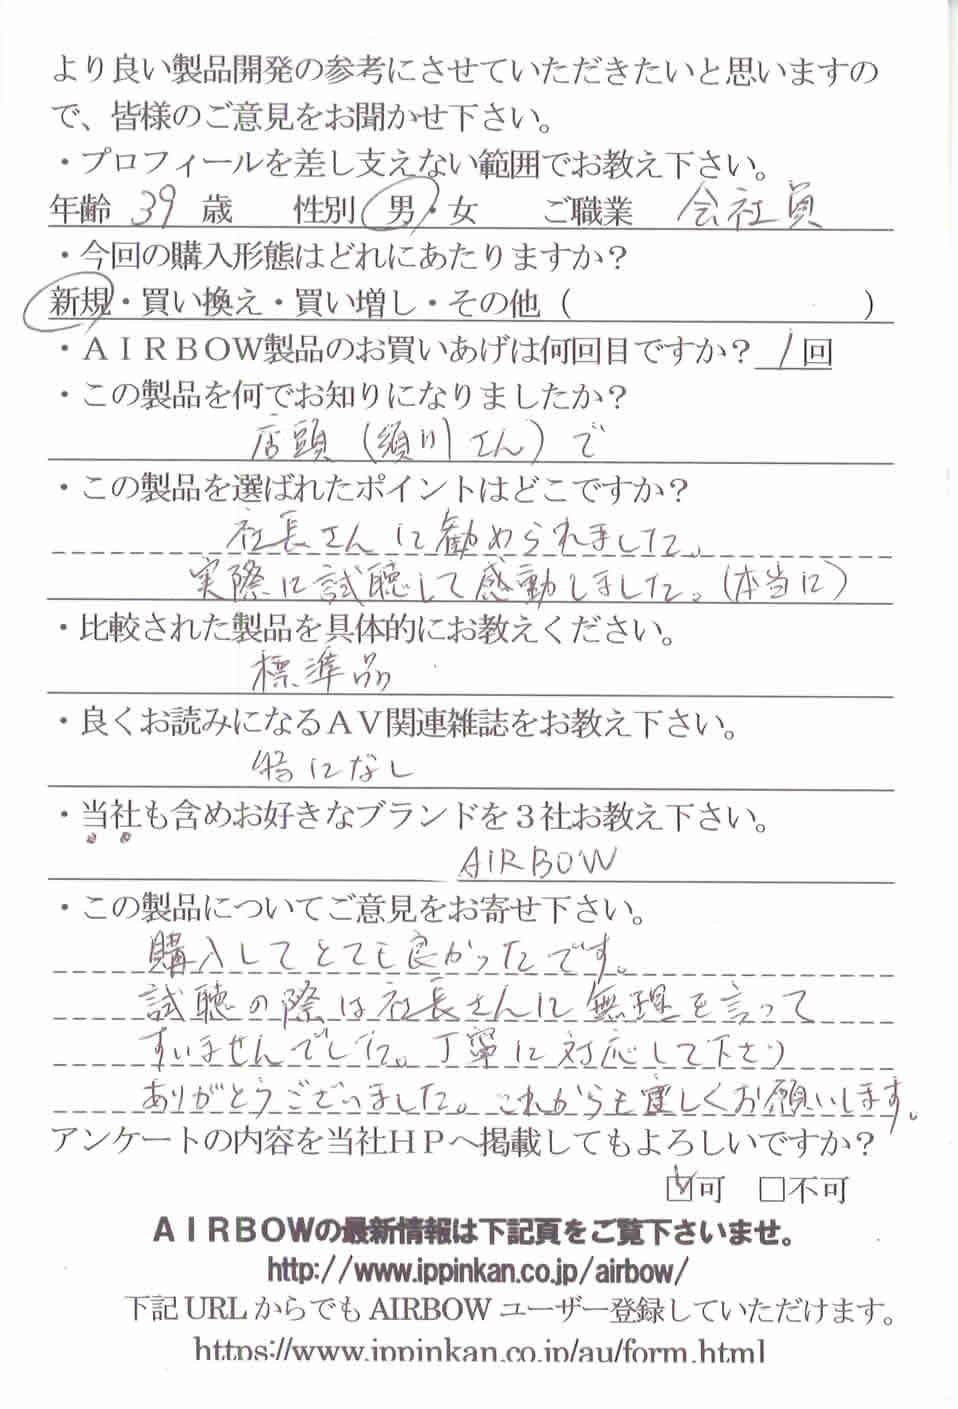 より良い製品開発の参考にさせていただきたいと思いますの
で、皆様のご意見をお聞かせ下さい。
・プロフィールを差し支えない範囲でお教え下さい。
年齢 39 歳 性別 男・女 ご職業 会社員
・今回の購入形態はどれにあたりますか？
新規・買い換え・買い増し・その他（ ）
・ＡＩＲＢＯＷ製品のお買いあげは何回目ですか？ 1 回
・この製品を何でお知りになりましたか？
店頭（須川さん）で
・この製品を選ばれたポイントはどこですか？
社長さんに勧められました。
実際に試聴して感動しました。（本当に）
・比較された製品を具体的にお教えください。
標準品
・良くお読みになるＡＶ関連雑誌をお教え下さい。
特になし
・当社も含めお好きなブランドを３社お教え下さい。
AIRBOW
・この製品についてご意見をお寄せ下さい。
購入してとても良かったです。
試聴の際は社長さんに無理を言って
すいませんでした。丁寧に対応して下さり
ありがとうございました。これからも宜しくお願いします。
アンケートの内容を当社ＨＰへ掲載してもよろしいですか？
☑可 □不可
ＡＩＲＢＯＷの最新情報は下記頁をご覧下さいませ。
http://www.ippinkan.co.jp/airbow/
下記 URL からでも AIRBOW ユーザー登録していただけます。
https://www.ippinkan.co.jp/au/form.html